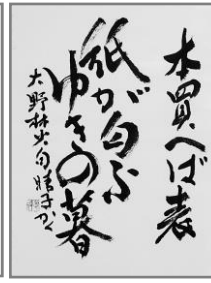 本買へば表
紙が匂ふ
ゆきの暮
大野林火句 晴子かく